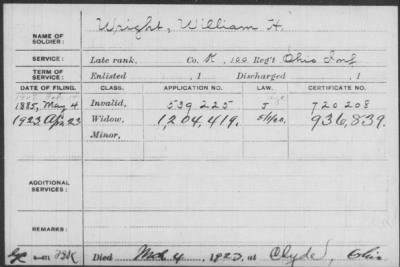 Wright, William H.
NAME OF SOLDIER:
SERVICE: Late rank, Co. K, 100 Reg't Ohio Inf.
TERM OF SERVICE: Enlisted , 1 Discharged , 1
DATE OF FILING. CLASS. APPLICATION NO. LAW. CERTIFICATE NO.
1885, May 4 Invalid, 539225 J 720208
1923 Apr 23 Widow, 1,204,419. 5/1/20. 936,839.
Minor,
ADDITIONAL SERVICES:
REMARKS:
Died Mch 4, 1923, at Clyde, Ohio